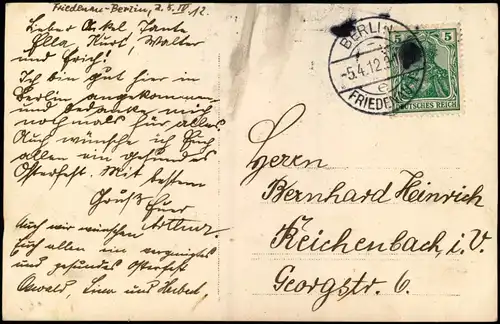 Friedenau-Berlin, 2. 5. IV 12.
Lieber Onkel Tante
Ella, Kurt, Walter
und Erich!
Ich bin gut hier in
Berlin angekommen
und bedanke mich
nochmals für alles.
Auch wünsche ich Euch
allen ein gesundes
Osterfest. Mit bestem
Gruß Euer
Arthur.
Auch wir wünschen
Euch allen ein vergnügtes
und gesundes Osterfest
Oswald, Lina und Hubert.
BERLIN
-5.4.12.
FRIEDENAU
5 5
DEUTSCHES REICH
Herrn
Bernhard Heinrich
Reichenbach, i. V.
Georgstr. 6.